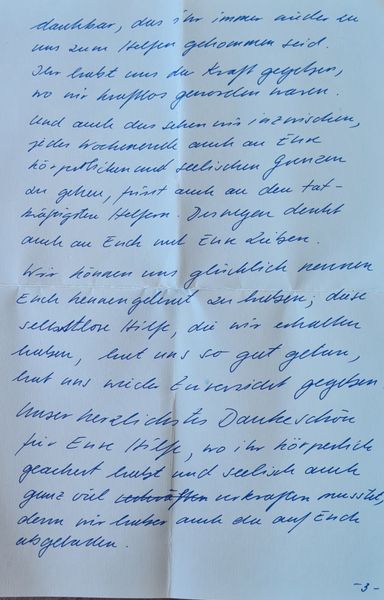 dankbar, das ihr immer wieder zu
uns zum Helfen gekommen seid.
Ihr habt uns die Kraft gegeben,
wo wir kraftlos geworden waren.
Und auch das sehen wir inzwischen,
jedes Wochenende auch an Eure
körperlichen und seelischen Grenzen
zu gehen, frisst auch an den tat-
kräftigsten Helfern. Deswegen denkt
auch an Euch und Eure Lieben.
Wir können uns glücklich nennen
Euch kennengelernt zu haben; diese
selbstlose Hilfe, die wir erhalten
haben, hat uns so gut getan,
hat uns wieder Zuversicht gegeben
Unser herzlichstes Dankeschön
für Eure Hilfe, wo ihr körperlich
geackert habt und seelisch auch
ganz viel verkraften musstet,
denn wir haben auch da auf Euch
abgeladen.
-3-